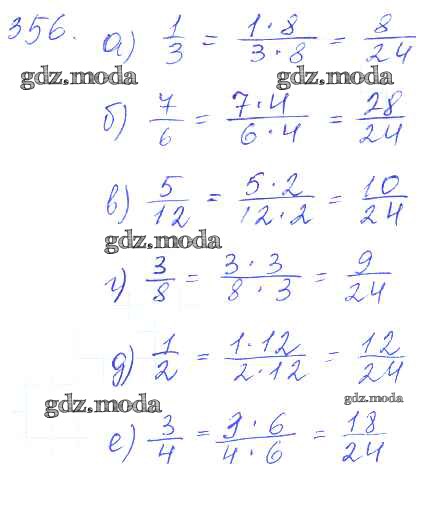 356. а) 1/3 = 1·8/3·8 = 8/24
gdz.moda gdz.moda
б) 7/6 = 7·4/6·4 = 28/24
в) 5/12 = 5·2/12·2 = 10/24
gdz.moda
г) 3/8 = 3·3/8·3 = 9/24
д) 1/2 = 1·12/2·12 = 12/24
gdz.moda gdz.moda
е) 3/4 = 3·6/4·6 = 18/24